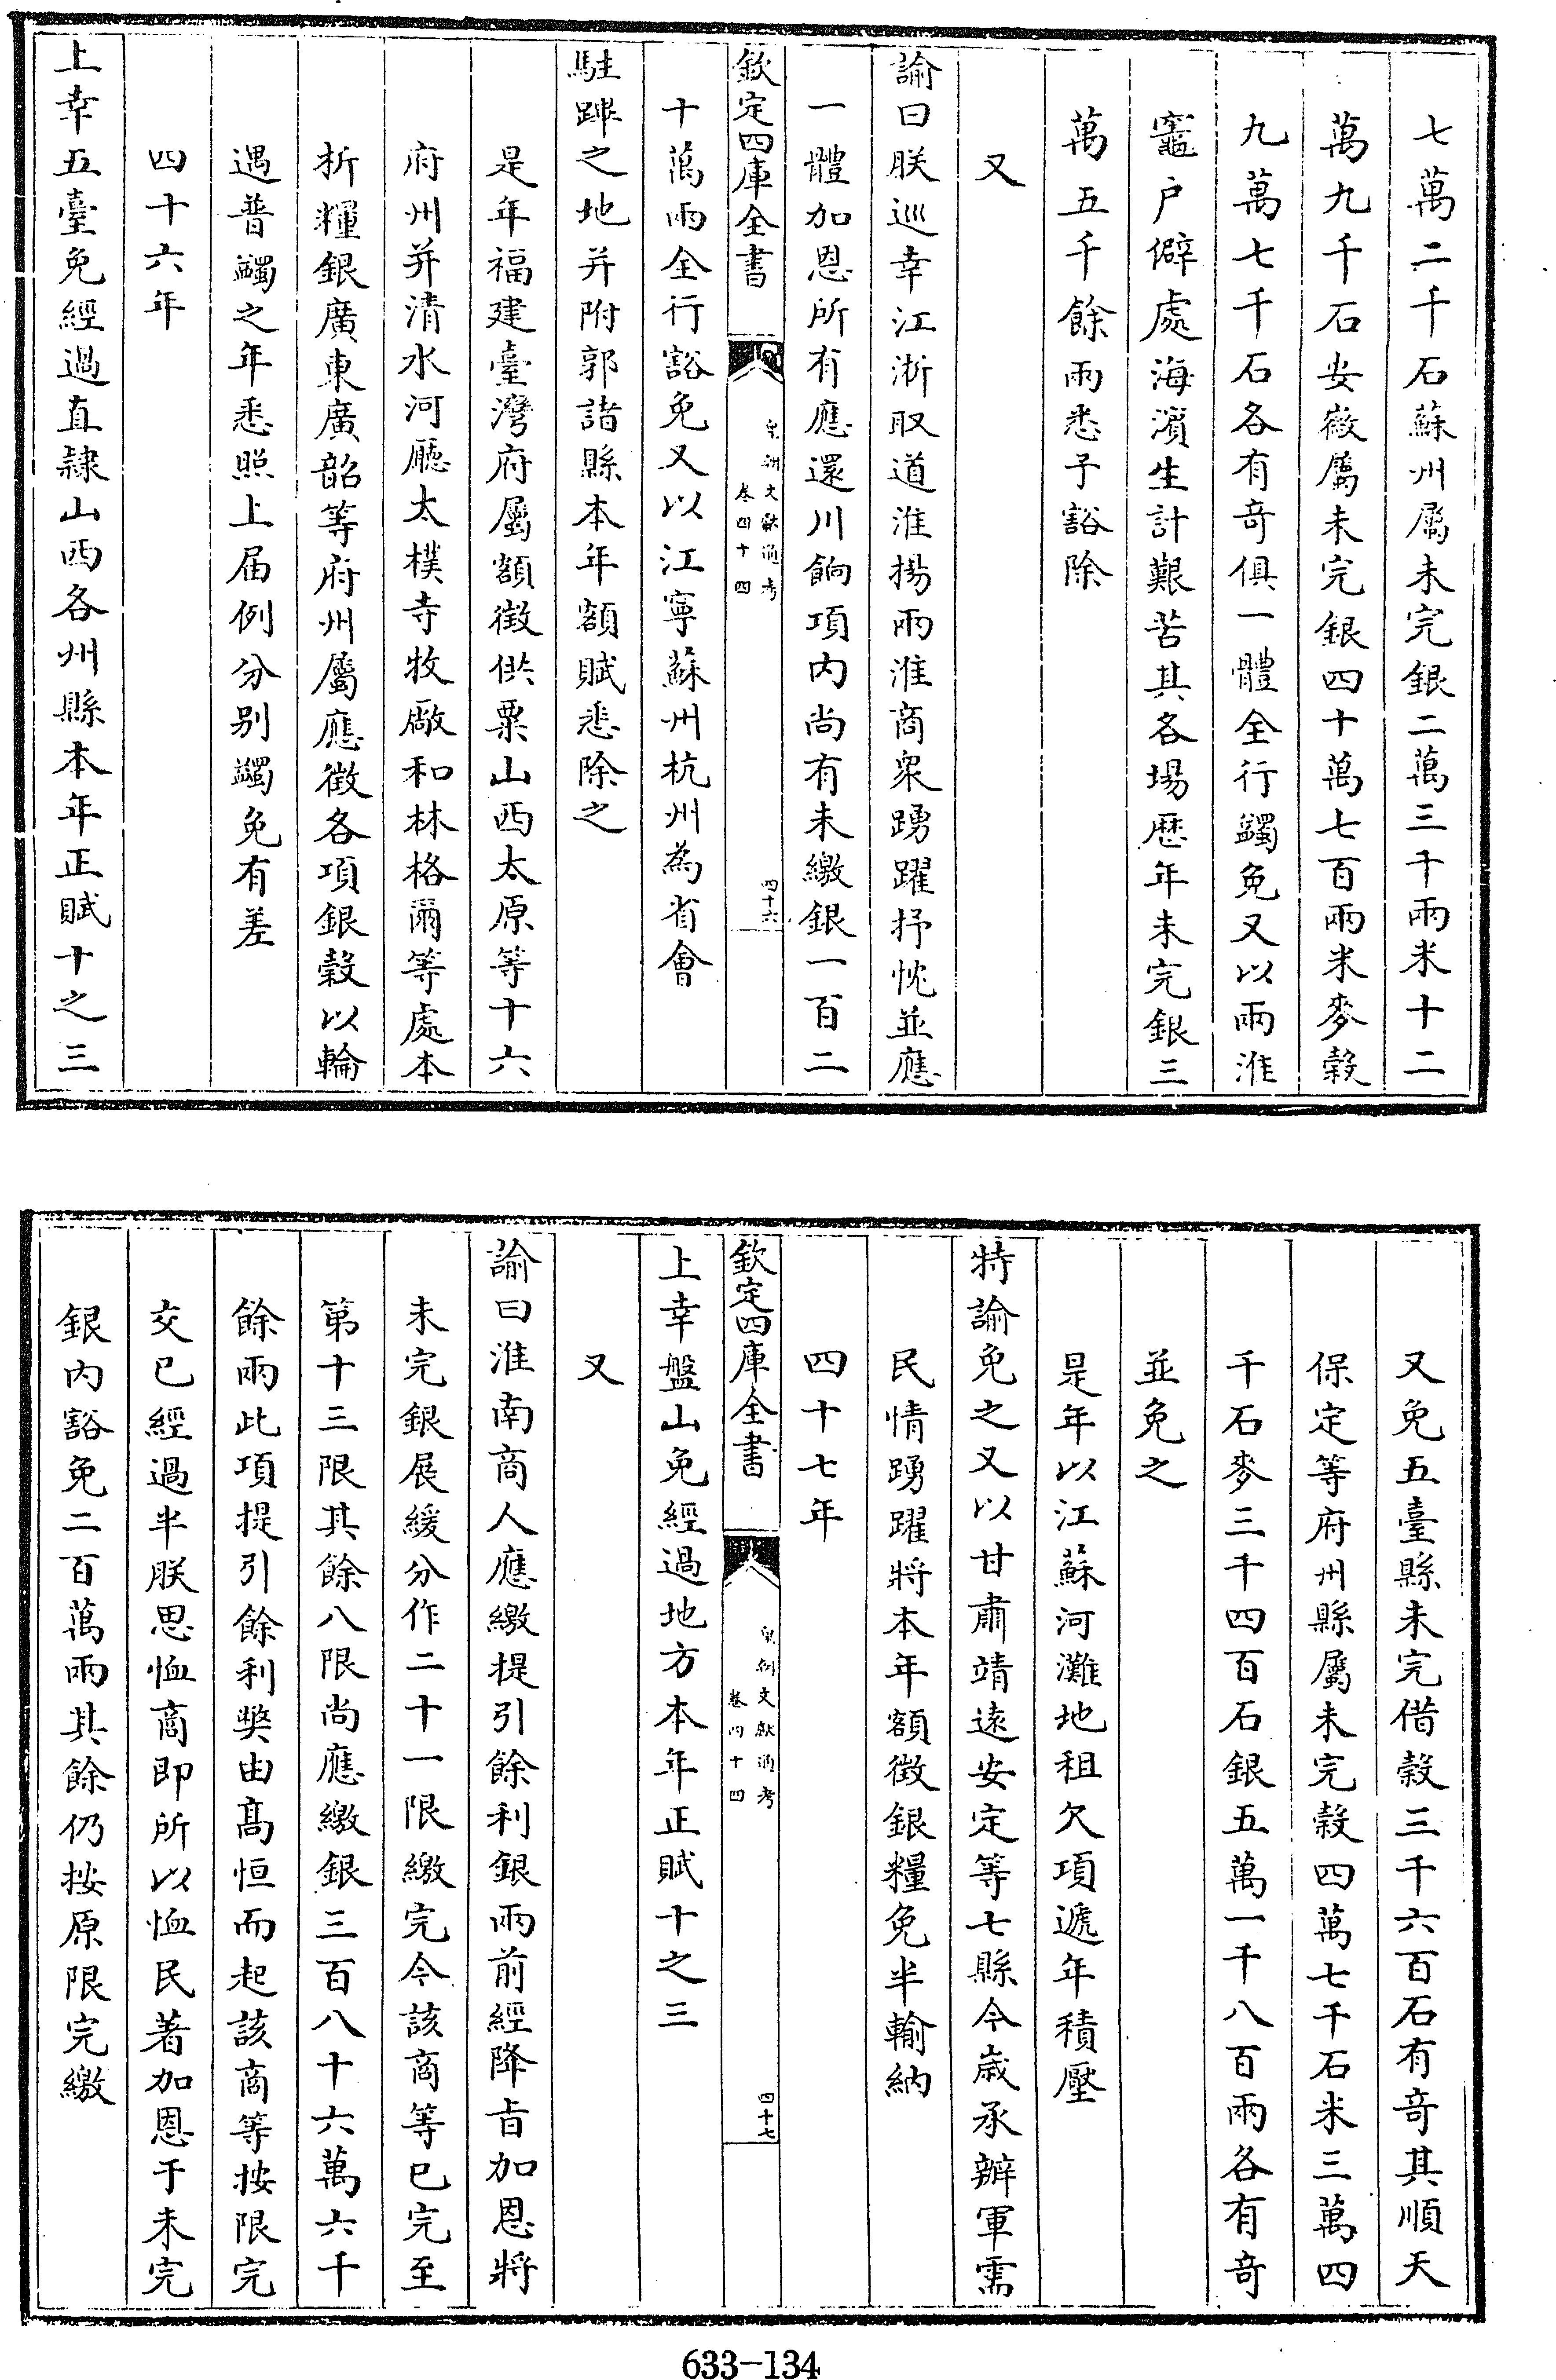 七萬二千石蘇州屬未完銀二萬三千兩米十二
萬九千石安徽屬未完銀四十萬七百兩米麥穀
九萬七千石各有竒俱一體全行蠲免又以兩淮
竈户僻處海濵生計艱苦其各場歷年未完銀三
萬五千餘兩悉予豁除
又
諭曰朕巡幸江浙取道淮揚兩淮商衆踴躍抒忱並應
一體加恩所有應還川餉項内尚有未繳銀一百二
欽定四庫全書
皇朝文獻通考
卷四十四
四十六
十萬兩全行豁免又以江寧蘇州杭州為省會
駐蹕之地并附郭諸縣本年額賦悉除之
是年福建臺灣府屬額徴供粟山西太原等十六
府州并清水河廳太樸寺牧廠和林格爾等處本
折糧銀廣東廣韶等府州屬應徴各項銀穀以輪
遇普蠲之年悉照上届例分别蠲免有差
四十六年
上幸五臺免經過直隷山西各州縣本年正賦十之三
又免五臺縣未完借穀三千六百石有竒其順天
保定等府州縣屬未完穀四萬七千石米三萬四
千石麥三千四百石銀五萬一千八百兩各有竒
並免之
是年以江蘇河灘地租欠項遞年積壓
特諭免之又以甘肅靖逺安定等七縣今歳承辦軍需
民情踴躍將本年額徴銀糧免半輸納
四十七年
欽定四庫全書
皇朝文獻通考
卷四十四
四十七
上幸盤山免經過地方本年正賦十之三
又
諭曰淮南商人應繳提引餘利銀兩前經降旨加恩將
未完銀展緩分作二十一限繳完今該商等已完至
第十三限其餘八限尚應繳銀三百八十六萬六千
餘兩此項提引餘利獘由髙恒而起該商等按限完
交已經過半朕思恤商即所以恤民著加恩于未完
銀内豁免二百萬兩其餘仍按原限完繳
633-134